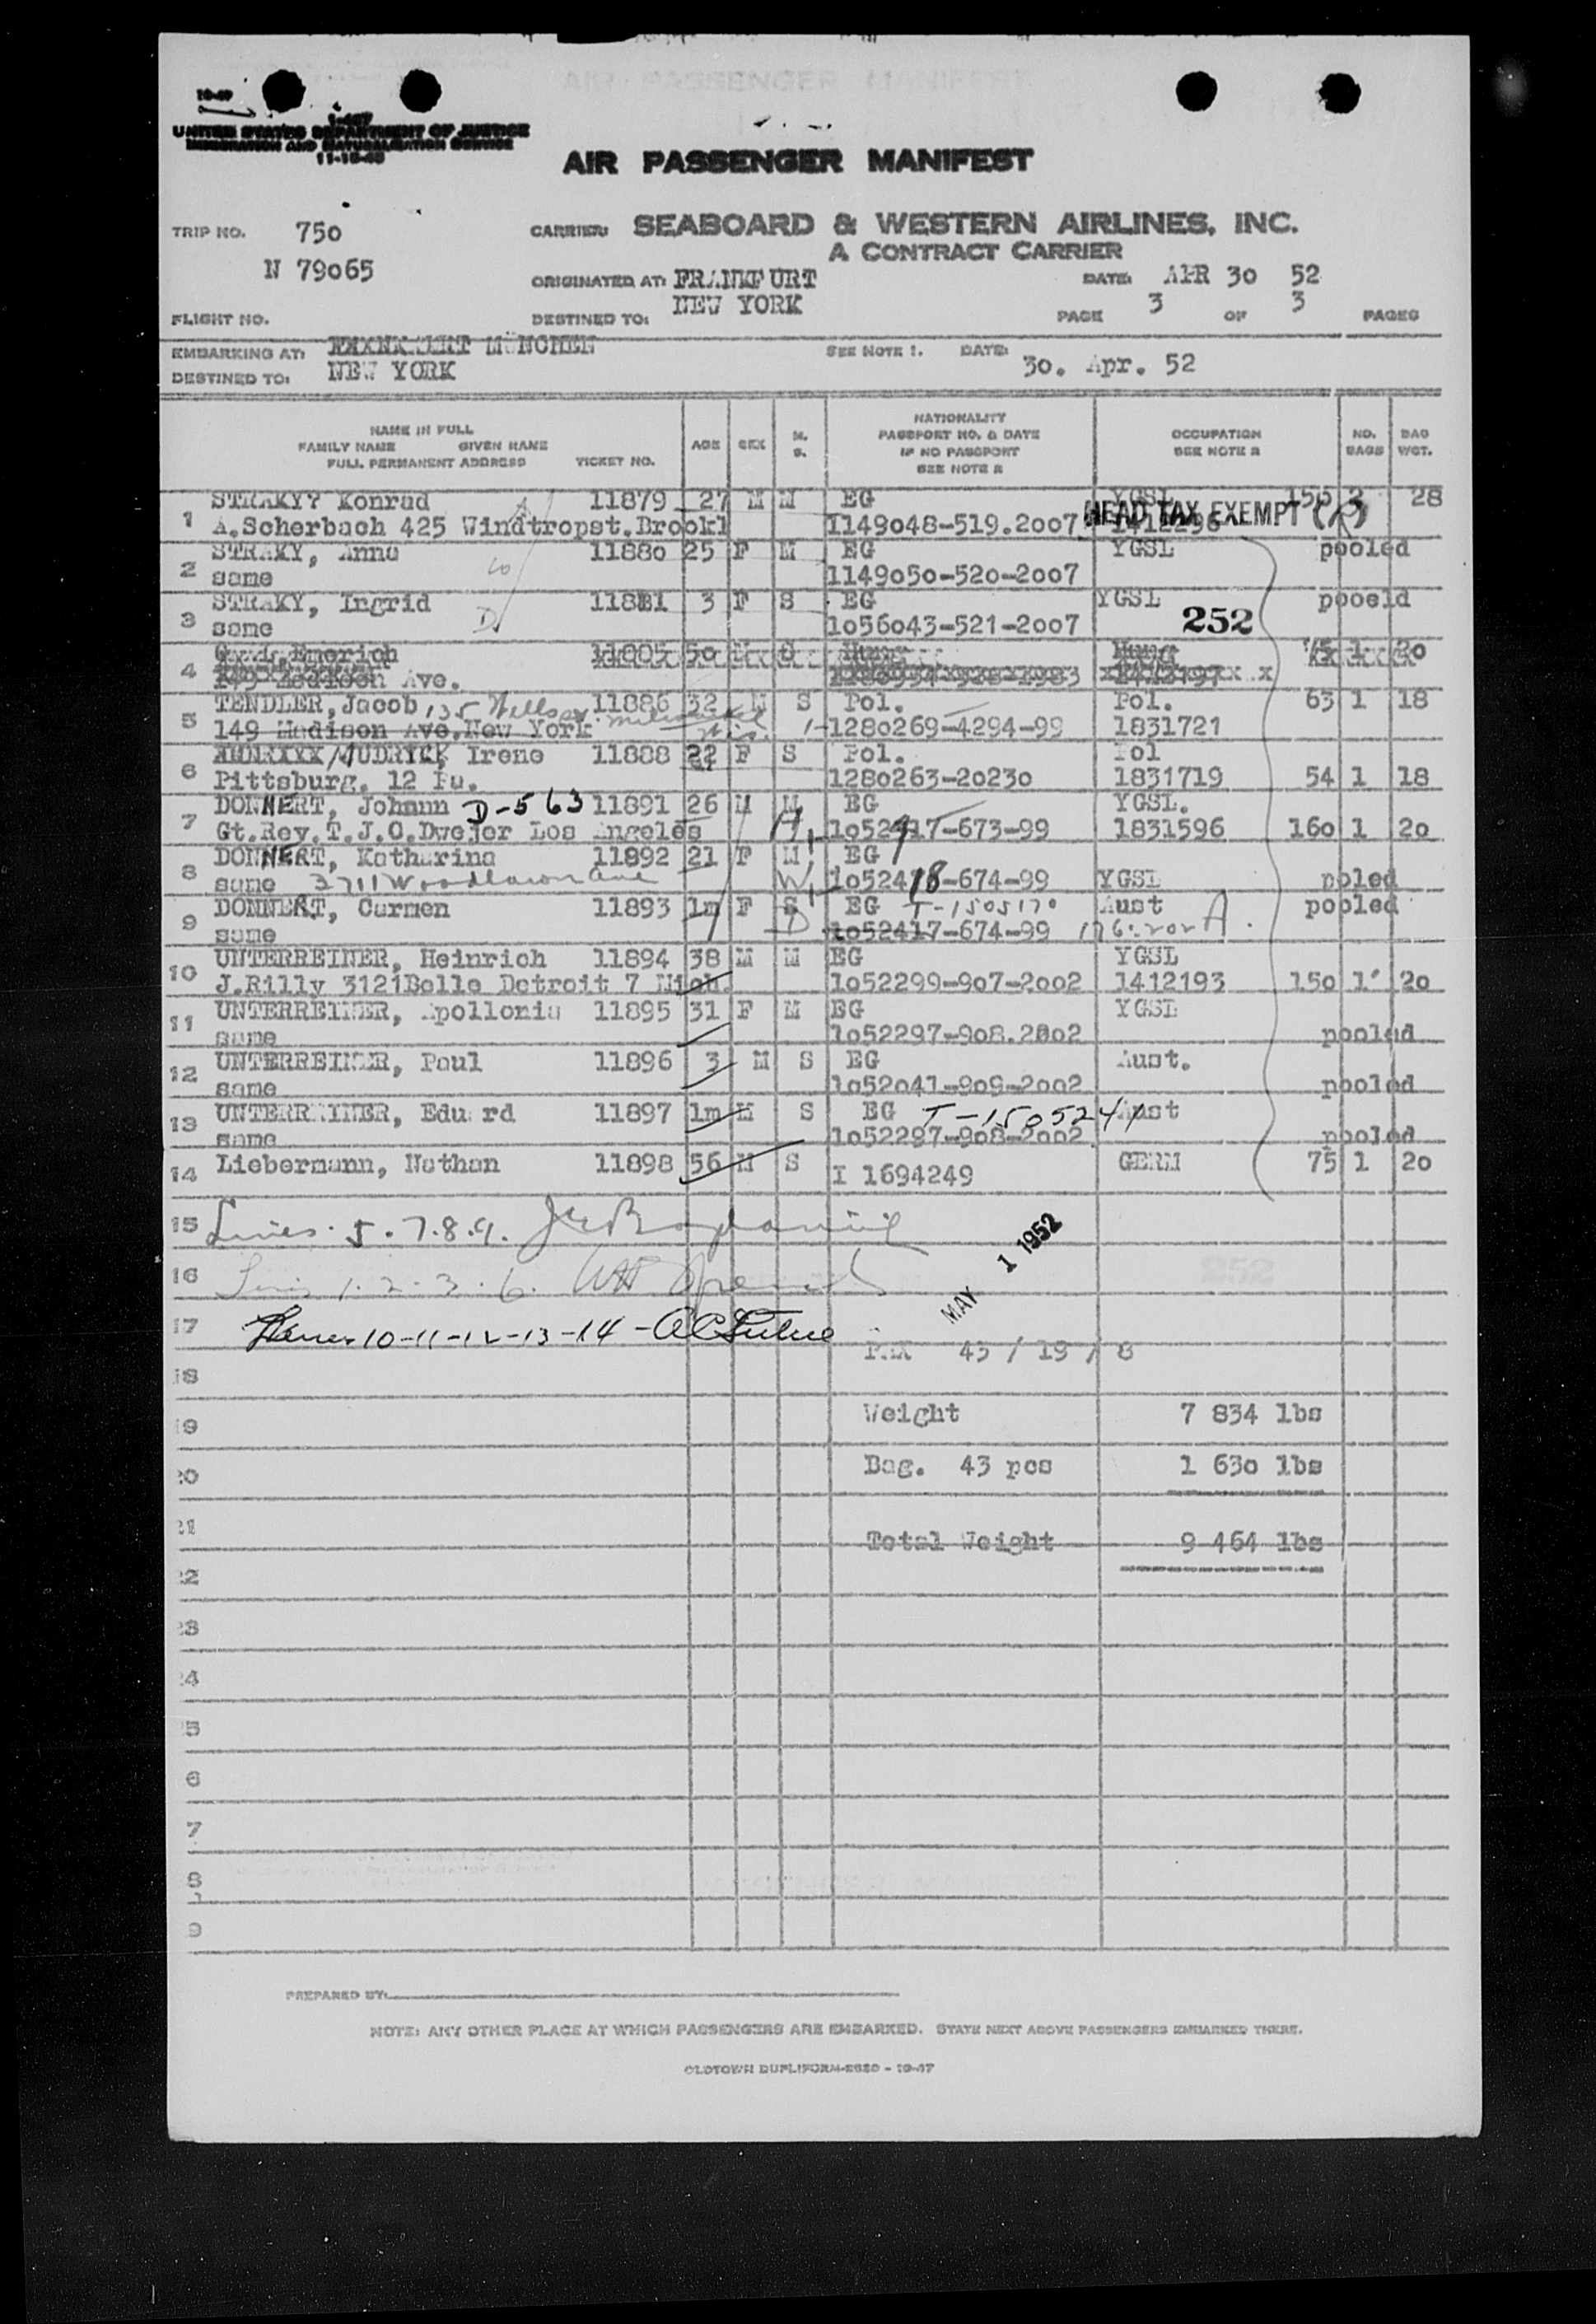 10-49
I-467
UNITED STATES DEPARTMENT OF JUSTICE
IMMIGRATION AND NATURALIZATION SERVICE
11-18-48
AIR PASSENGER MANIFEST
TRIP NO. 750 CARRIER: SEABOARD & WESTERN AIRLINES, INC.
A CONTRACT CARRIER
N 79065 ORIGINATED AT: FRANKFURT DATE: APR 30 52
FLIGHT NO. DESTINED TO: NEW YORK PAGE 3 OF 3 PAGES
EMBARKING AT: MÜNCHEN SEE NOTE 1. DATE: 30. Apr. 52
DESTINED TO: NEW YORK
NAME IN FULL
FAMILY NAME GIVEN NAME
FULL PERMANENT ADDRESS TICKET NO. AGE SEX M. S. NATIONALITY
PASSPORT NO. & DATE
IF NO PASSPORT
SEE NOTE 2 OCCUPATION
SEE NOTE 2 NO. BAGS BAG WGT.
1 STRAKY? Konrad 11879 27 M M EG YGSL 156 2 28
A.Scherbach 425 Windtropst.Brookl 1149048-519.2007 1412196 HEAD TAX EXEMPT
2 STRAKY, Anna 11880 25 F M EG YGSL pooled
same 1149050-520-2007
3 STRAKY, Ingrid 11881 3 F S EG YGSL pooeld
same 1056043-521-2007 252
4 Emerich 11885 50 Hung Hung 75 1 20
149 Madison Ave.
5 TENDLER, Jacob 135 Wells 11886 32 M S Pol. Pol. 63 1 18
149 Madison Ave.New York Milwaukee Wis. 1280269-4294-99 1831721
6 /MUDRYCK Irene 11888 22 F S Pol. Pol
Pittsburg. 12 Pa. 1280263-20230 1831719 54 1 18
7 DONNERT, Johann D-563 11891 26 M M EG YGSL.
Gt.Rev.T.J.O.Dwejer Los Angeles H 1052417-673-99 1831596 160 1 20
8 DONNERT, Katharina 11892 21 F M EG
same 3711 Woodlawn Ave W 1052418-674-99 YGSL poled
9 DONNERT, Carmen 11893 1m F S EG T-1505170 Aust pooled
same D 1052417-674-99 176.202 A.
10 UNTERREINER, Heinrich 11894 38 M M EG YGSL
J.Rilly 3121Belle Detroit 7 Mich. 1052299-907-2002 1412193 150 1 20
11 UNTERREINER, Apollonia 11895 31 F M EG YGSL
same 1052297-908.2002 pooled
12 UNTERREINER, Paul 11896 3 M S EG Aust.
same 1052041-909-2002 pooled
13 UNTERREINER, Eduard 11897 1m M S EG T-1505244 Aust
same 1052297-908-2002 pooled
14 Liebermann, Nathan 11898 56 M S I 1694249 GERM 75 1 20
15 Lines. 5.7.8.9.
16 Lines 1.2.3.6.
MAY 1 1952
17 Lines 10-11-12-13-14-
PAX 43 / 19 / 8
18
19 Weight 7 834 lbs
20 Bag. 43 pcs 1 630 lbs
21
Total Weight 9 464 lbs
22
23
24
5
6
7
8
9
PREPARED BY:
NOTE: ANY OTHER PLACE AT WHICH PASSENGERS ARE EMBARKED. STATE NEXT ABOVE PASSENGERS EMBARKED THERE.
OLDTOWN DUPLIFORM-2620 - 10-47